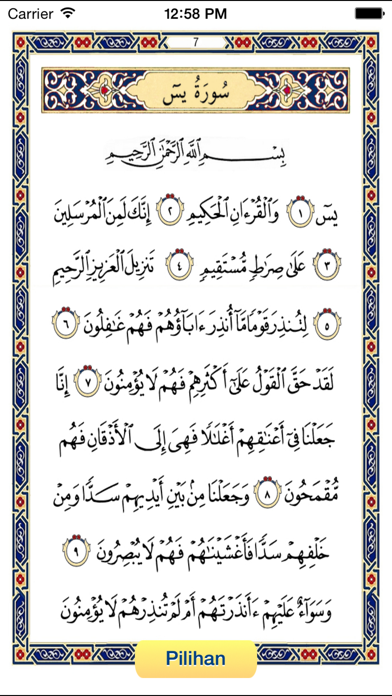 Carrier 12:58 PM
7
سُورَةُ يسٓ
بِسْمِ ٱللَّهِ ٱلرَّحْمَٰنِ ٱلرَّحِيمِ
يسٓ ١ وَٱلْقُرْءَانِ ٱلْحَكِيمِ ٢ إِنَّكَ لَمِنَ ٱلْمُرْسَلِينَ
٣ عَلَىٰ صِرَٰطٍ مُّسْتَقِيمٍ ٤ تَنزِيلَ ٱلْعَزِيزِ ٱلرَّحِيمِ
٥ لِتُنذِرَ قَوْمًا مَّآ أُنذِرَ ءَابَآؤُهُمْ فَهُمْ غَٰفِلُونَ ٦
لَقَدْ حَقَّ ٱلْقَوْلُ عَلَىٰٓ أَكْثَرِهِمْ فَهُمْ لَا يُؤْمِنُونَ ٧ إِنَّا
جَعَلْنَا فِىٓ أَعْنَٰقِهِمْ أَغْلَٰلًا فَهِىَ إِلَى ٱلْأَذْقَانِ فَهُم
مُّقْمَحُونَ ٨ وَجَعَلْنَا مِنۢ بَيْنِ أَيْدِيهِمْ سَدًّا وَمِنْ
خَلْفِهِمْ سَدًّا فَأَغْشَيْنَٰهُمْ فَهُمْ لَا يُبْصِرُونَ ٩
وَسَوَآءٌ عَلَيْهِمْ ءَأَنذَرْتَهُمْ أَمْ لَمْ تُنذِرْهُمْ لَا يُؤْمِنُونَ
Pilihan